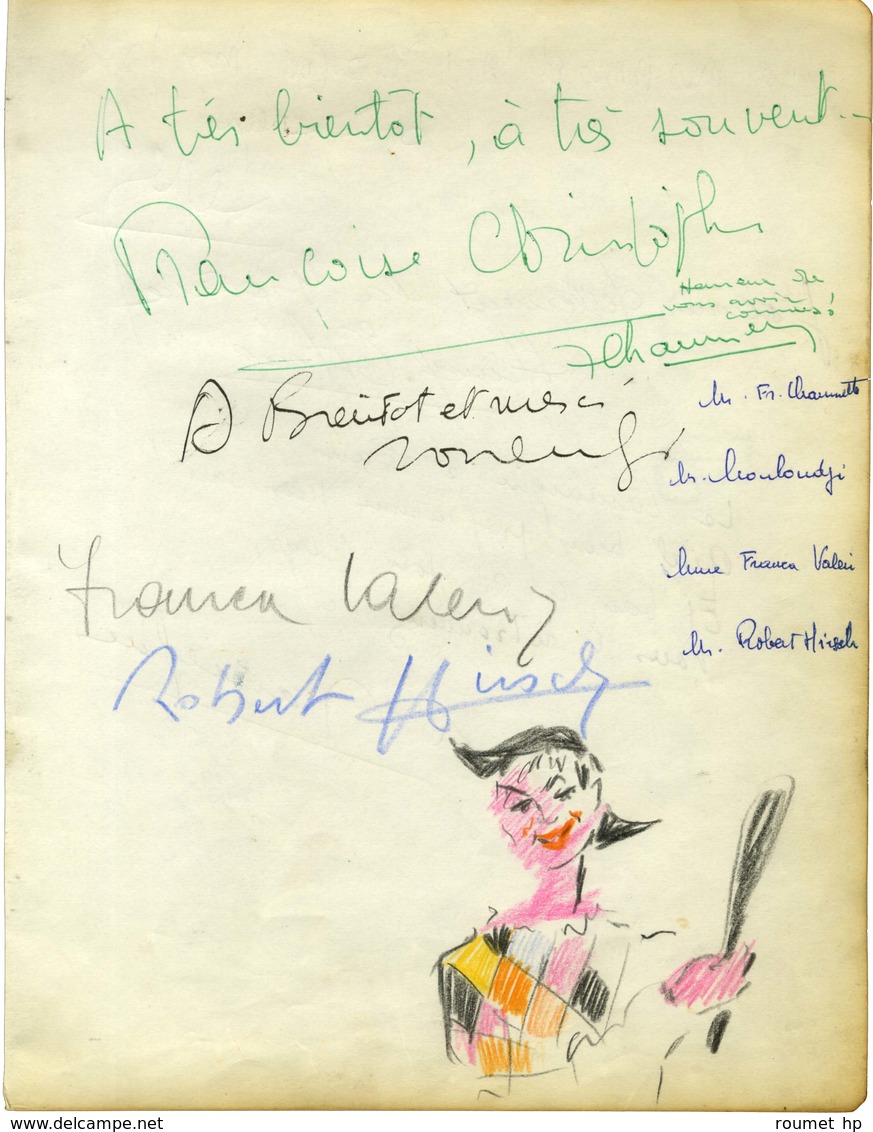 A très bientôt, à très souvent...
Françoise Christophe
Honneur de
vous avoir
connus!
FChaumette
A Bientôt et merci
Mouloudji
Mr. Fr. Chaumette
Mr. Mouloudji
Mme Franca Valeri
Franca Valeri
Mr. Robert Hirsch
Robert Hirsch
delcampe.net
roumet_hp